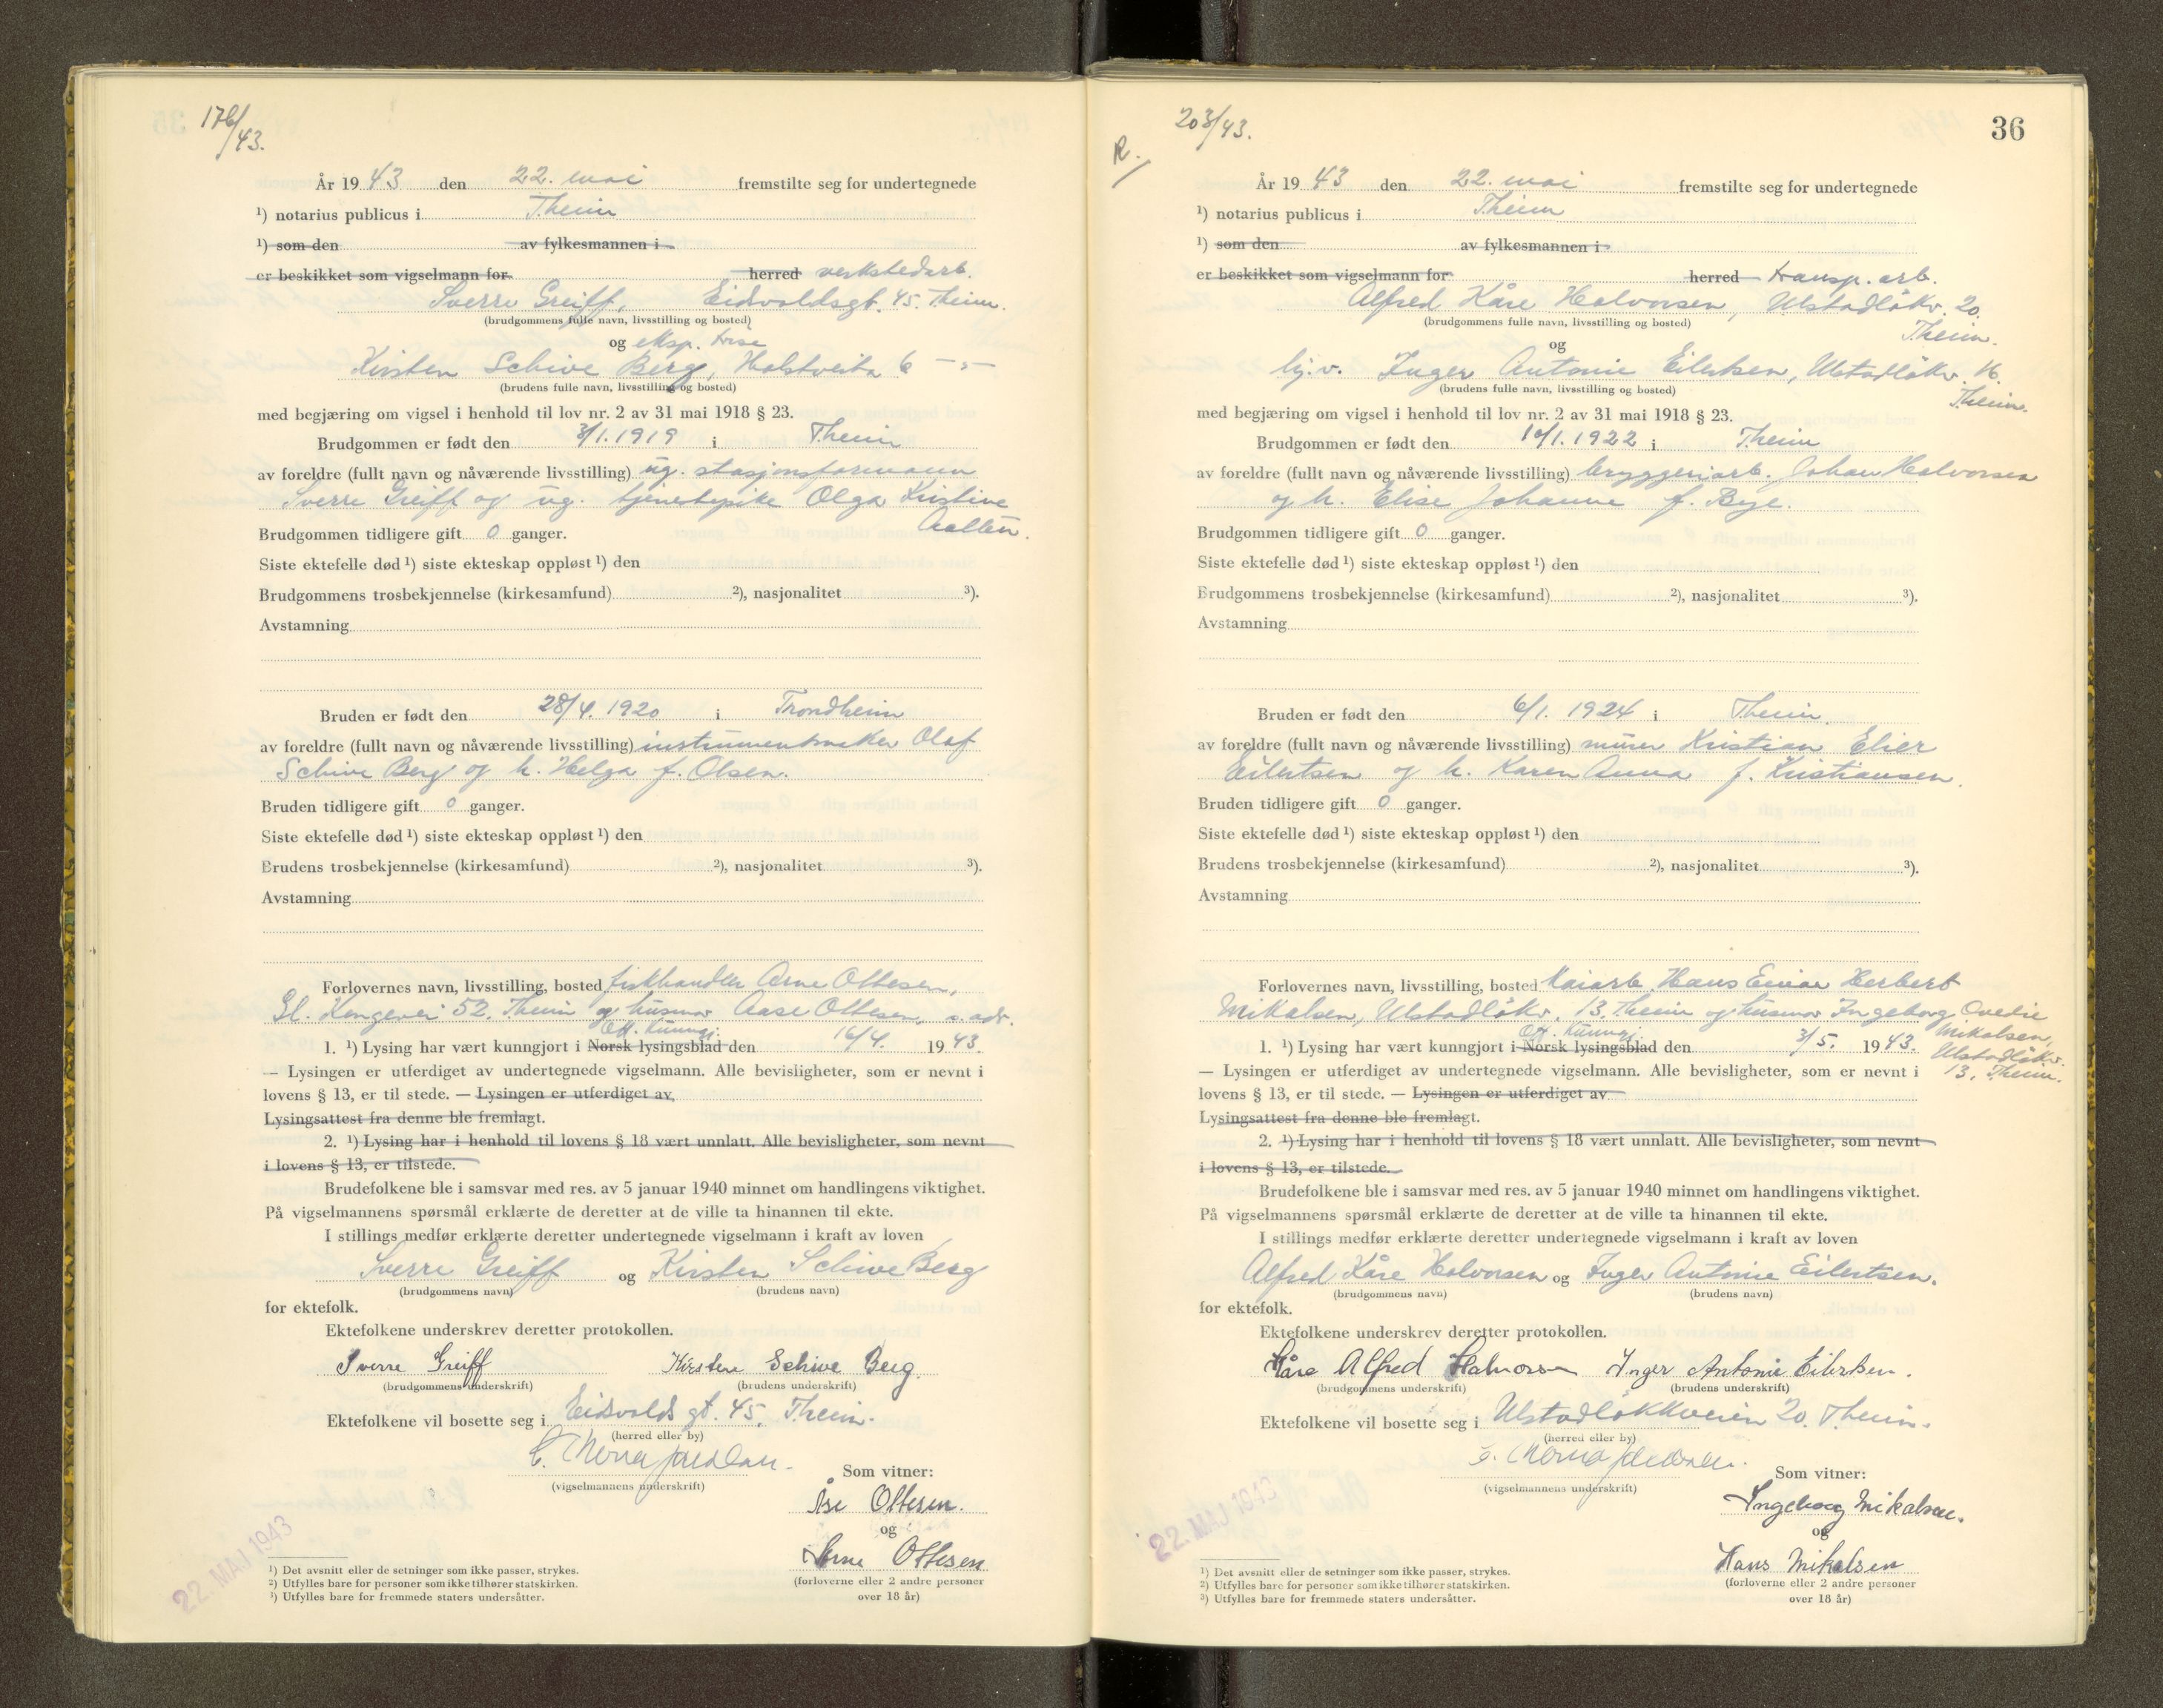 176/43.
År 1943 den 22. mai fremstilte seg for undertegnede
¹) notarius publicus i Theim
¹) som den av fylkesmannen i
er beskikket som vigselmann for herred verkstedarb.
Sverre Greiff, Eidsvoldsgt. 45. Theim.
(brudgommens fulle navn, livsstilling og bosted)
og eksp. trise
Kirsten Schive Berg, Holstveita 6 –„–
(brudens fulle navn, livsstilling og bosted)
med begjæring om vigsel i henhold til lov nr. 2 av 31 mai 1918 § 23.
Brudgommen er født den 3/1. 1919 i Theim
av foreldre (fullt navn og nåværende livsstilling) ug. stasjonsformann
Sverre Greiff og ug. tjenestepike Olga Kristine
Brudgommen tidligere gift 0 ganger.
Siste ektefelle død ¹) siste ekteskap oppløst ¹) den
Brudgommens trosbekjennelse (kirkesamfund) ²), nasjonalitet ³).
Avstamning
Bruden er født den 28/4. 1920 i Trondheim
av foreldre (fullt navn og nåværende livsstilling) instrumentmaker Olaf
Schive Berg og h. Helga f. Olsen.
Bruden tidligere gift 0 ganger.
Siste ektefelle død ¹) siste ekteskap oppløst ¹) den
Brudens trosbekjennelse (kirkesamfund) ²), nasjonalitet ³).
Avstamning
Forlovernes navn, livsstilling, bosted fiskhandler Arne Ottesen,
Gl. Kongevei 52. Theim og husmor Aase Ottesen, s. adr.
Off. kunngj.
1. ¹) Lysing har vært kunngjort i Norsk lysingsblad den 16/4. 1943.
— Lysingen er utferdiget av undertegnede vigselmann. Alle bevisligheter, som er nevnt i
lovens § 13, er til stede. — Lysingen er utferdiget av
Lysingsattest fra denne ble fremlagt.
2. ¹) Lysing har i henhold til lovens § 18 vært unnlatt. Alle bevisligheter, som nevnt
i lovens § 13, er tilstede.
Brudefolkene ble i samsvar med res. av 5 januar 1940 minnet om handlingens viktighet.
På vigselmannens spørsmål erklærte de deretter at de ville ta hinannen til ekte.
I stillings medfør erklærte deretter undertegnede vigselmann i kraft av loven
Sverre Greiff og Kirsten Schive Berg
(brudgommens navn) (brudens navn)
for ektefolk.
Ektefolkene underskrev deretter protokollen.
Sverre Greiff Kirsten Schive Berg.
(brudgommens underskrift) (brudens underskrift)
Ektefolkene vil bosette seg i Eidsvolds gt. 45. Theim.
(herred eller by)
(vigselmannens underskrift)
Som vitner:
Åse Ottesen.
og
Arne Ottesen
(forloverne eller 2 andre personer
over 18 år)
22. MAI 1943
¹) Det avsnitt eller de setninger som ikke passer, strykes.
²) Utfylles bare for personer som ikke tilhører statskirken.
³) Utfylles bare for fremmede staters undersåtter.
R.
203/43.
36
År 1943 den 22. mai fremstilte seg for undertegnede
¹) notarius publicus i Theim
¹) som den av fylkesmannen i
er beskikket som vigselmann for herred transp. arb.
Alfred Kåre Halvorsen, Ulstadløkv. 20.
Theim.
(brudgommens fulle navn, livsstilling og bosted)
og
hj.v. Inger Antonie Eilertsen, Ulstadløkv. 16.
Theim.
(brudens fulle navn, livsstilling og bosted)
med begjæring om vigsel i henhold til lov nr. 2 av 31 mai 1918 § 23.
Brudgommen er født den 10/1. 1922 i Theim
av foreldre (fullt navn og nåværende livsstilling) bryggeriarb. Johan Halvorsen
og h. Elise Johanne f. Bye.
Brudgommen tidligere gift 0 ganger.
Siste ektefelle død ¹) siste ekteskap oppløst ¹) den
Brudgommens trosbekjennelse (kirkesamfund) ²), nasjonalitet ³).
Avstamning
Bruden er født den 6/1. 1924 i Theim.
av foreldre (fullt navn og nåværende livsstilling) murer Kristian Elier
Eilertsen og h. Karen Anna f. Kristiansen.
Bruden tidligere gift 0 ganger.
Siste ektefelle død ¹) siste ekteskap oppløst ¹) den
Brudens trosbekjennelse (kirkesamfund) ²), nasjonalitet ³).
Avstamning
Forlovernes navn, livsstilling, bosted Kaiarb. Hans Einar Herbert
Mikalsen, Ulstadløkv. 13. Theim og husmor Ingeborg Ovedie
Mikalsen,
Ulstadløkv.
13. Theim.
Off. kunngj.
1. ¹) Lysing har vært kunngjort i Norsk lysingsblad den 3/5. 1943.
— Lysingen er utferdiget av undertegnede vigselmann. Alle bevisligheter, som er nevnt i
lovens § 13, er til stede. — Lysingen er utferdiget av
Lysingsattest fra denne ble fremlagt.
2. ¹) Lysing har i henhold til lovens § 18 vært unnlatt. Alle bevisligheter, som nevnt
i lovens § 13, er tilstede.
Brudefolkene ble i samsvar med res. av 5 januar 1940 minnet om handlingens viktighet.
På vigselmannens spørsmål erklærte de deretter at de ville ta hinannen til ekte.
I stillings medfør erklærte deretter undertegnede vigselmann i kraft av loven
Alfred Kåre Halvorsen og Inger Antonie Eilertsen.
(brudgommens navn) (brudens navn)
for ektefolk.
Ektefolkene underskrev deretter protokollen.
Kåre Alfred Halvorsen Inger Antonie Eilertsen.
(brudgommens underskrift) (brudens underskrift)
Ektefolkene vil bosette seg i Ulstadløkkveien 20. Theim.
(herred eller by)
(vigselmannens underskrift)
Som vitner:
Ingeborg Mikalsen.
og
Hans Mikalsen
(forloverne eller 2 andre personer
over 18 år)
22. MAI 1943
¹) Det avsnitt eller de setninger som ikke passer, strykes.
²) Utfylles bare for personer som ikke tilhører statskirken.
³) Utfylles bare for fremmede staters undersåtter.